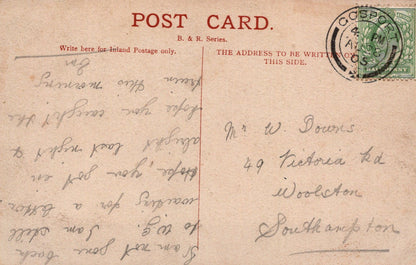 POST CARD.
B. & R. Series.
Write here for Inland Postage only.
THE ADDRESS TO BE WRITTEN ON
THIS SIDE.
GOSPORT
I am not gone back
to W.G. I am still
waiting for a letter
Hope, you got on
alright last night &
hope you caught the
train this morning
Em
Mr W. Downs
49 Victoria Rd
Woolston
Southampton